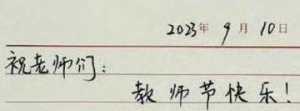 2023年9月10日
祝老师们:
教师节快乐!